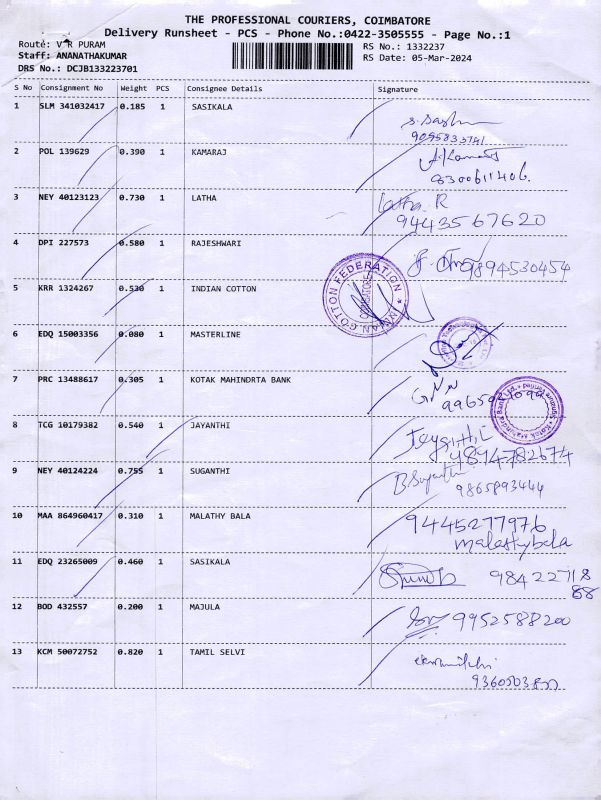 THE PROFESSIONAL COURIERS, COIMBATORE
Delivery Runsheet - PCS - Phone No.:0422-3505555 - Page No.:1
Route: V R PURAM
RS No.: 1332237
Staff: ANANATHAKUMAR
RS Date: 05-Mar-2024
DRS No.: DCJB133223701
S No Consignment No Weight PCS Consignee Details Signature
1 SLM 341032417 0.185 1 SASIKALA
9095833741
2 POL 139629 0.390 1 KAMARAJ
8300611406.
3 NEY 40123123 0.730 1 LATHA Latha R
9443567620
4 DPI 227573 0.580 1 RAJESHWARI
9894530454
5 KRR 1324267 0.530 1 INDIAN COTTON
INDIAN COTTON FEDERATION
COIMBATORE
6 EDQ 15003356 0.080 1 MASTERLINE
7 PRC 13488617 0.305 1 KOTAK MAHINDRTA BANK
Kotak Mahindra Bank Ltd.
8 TCG 10179382 0.540 1 JAYANTHI
9 NEY 40124224 0.755 1 SUGANTHI B.Suganthi
9865893444
10 MAA 864960417 0.310 1 MALATHY BALA 9445277976
malathybala
11 EDQ 23265009 0.460 1 SASIKALA
98422718
88
12 BOD 432557 0.200 1 MAJULA 9952588200
13 KCM 50072752 0.820 1 TAMIL SELVI